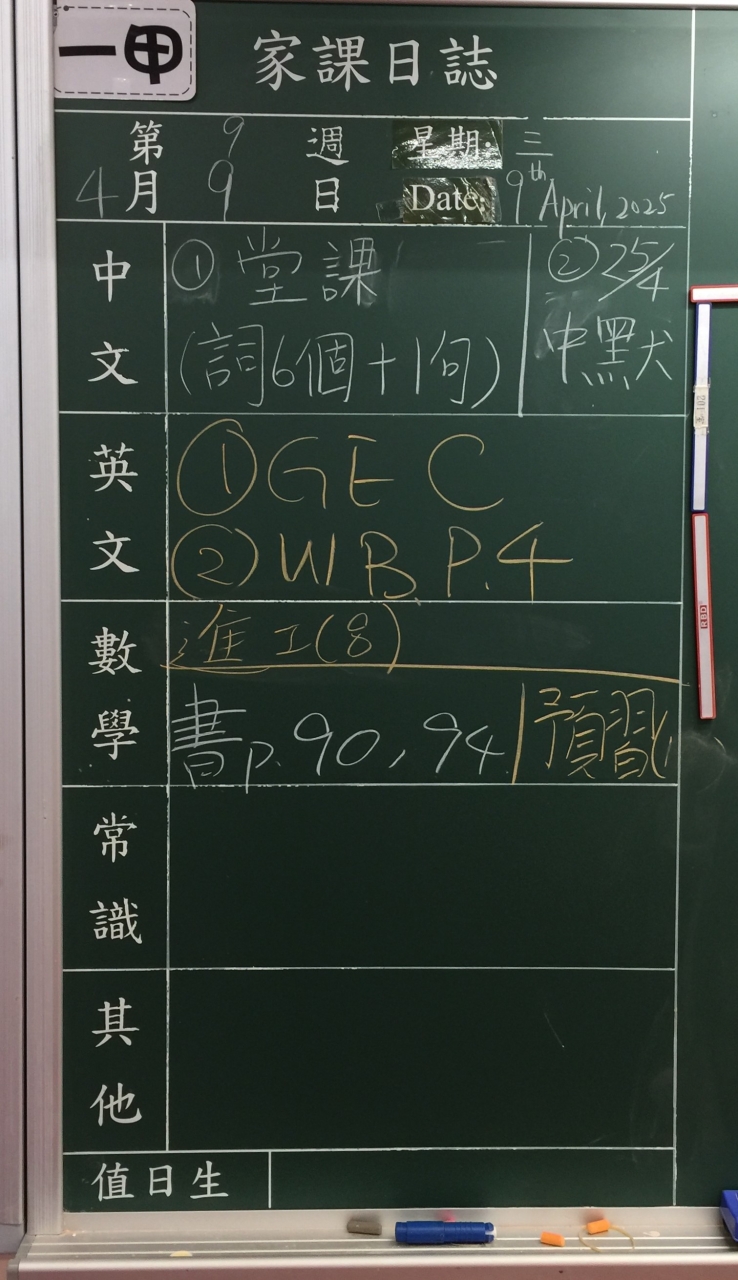 一甲
家課日誌
第9週 星期: 三
4月9日 Date: 9th April, 2025
中文
① 堂課
(詞6個+1句)
② 25/4
中默
英文
① GE C
② WB P.4
數學
進工(8)
書p.90,94
預習
常識
其他
值日生